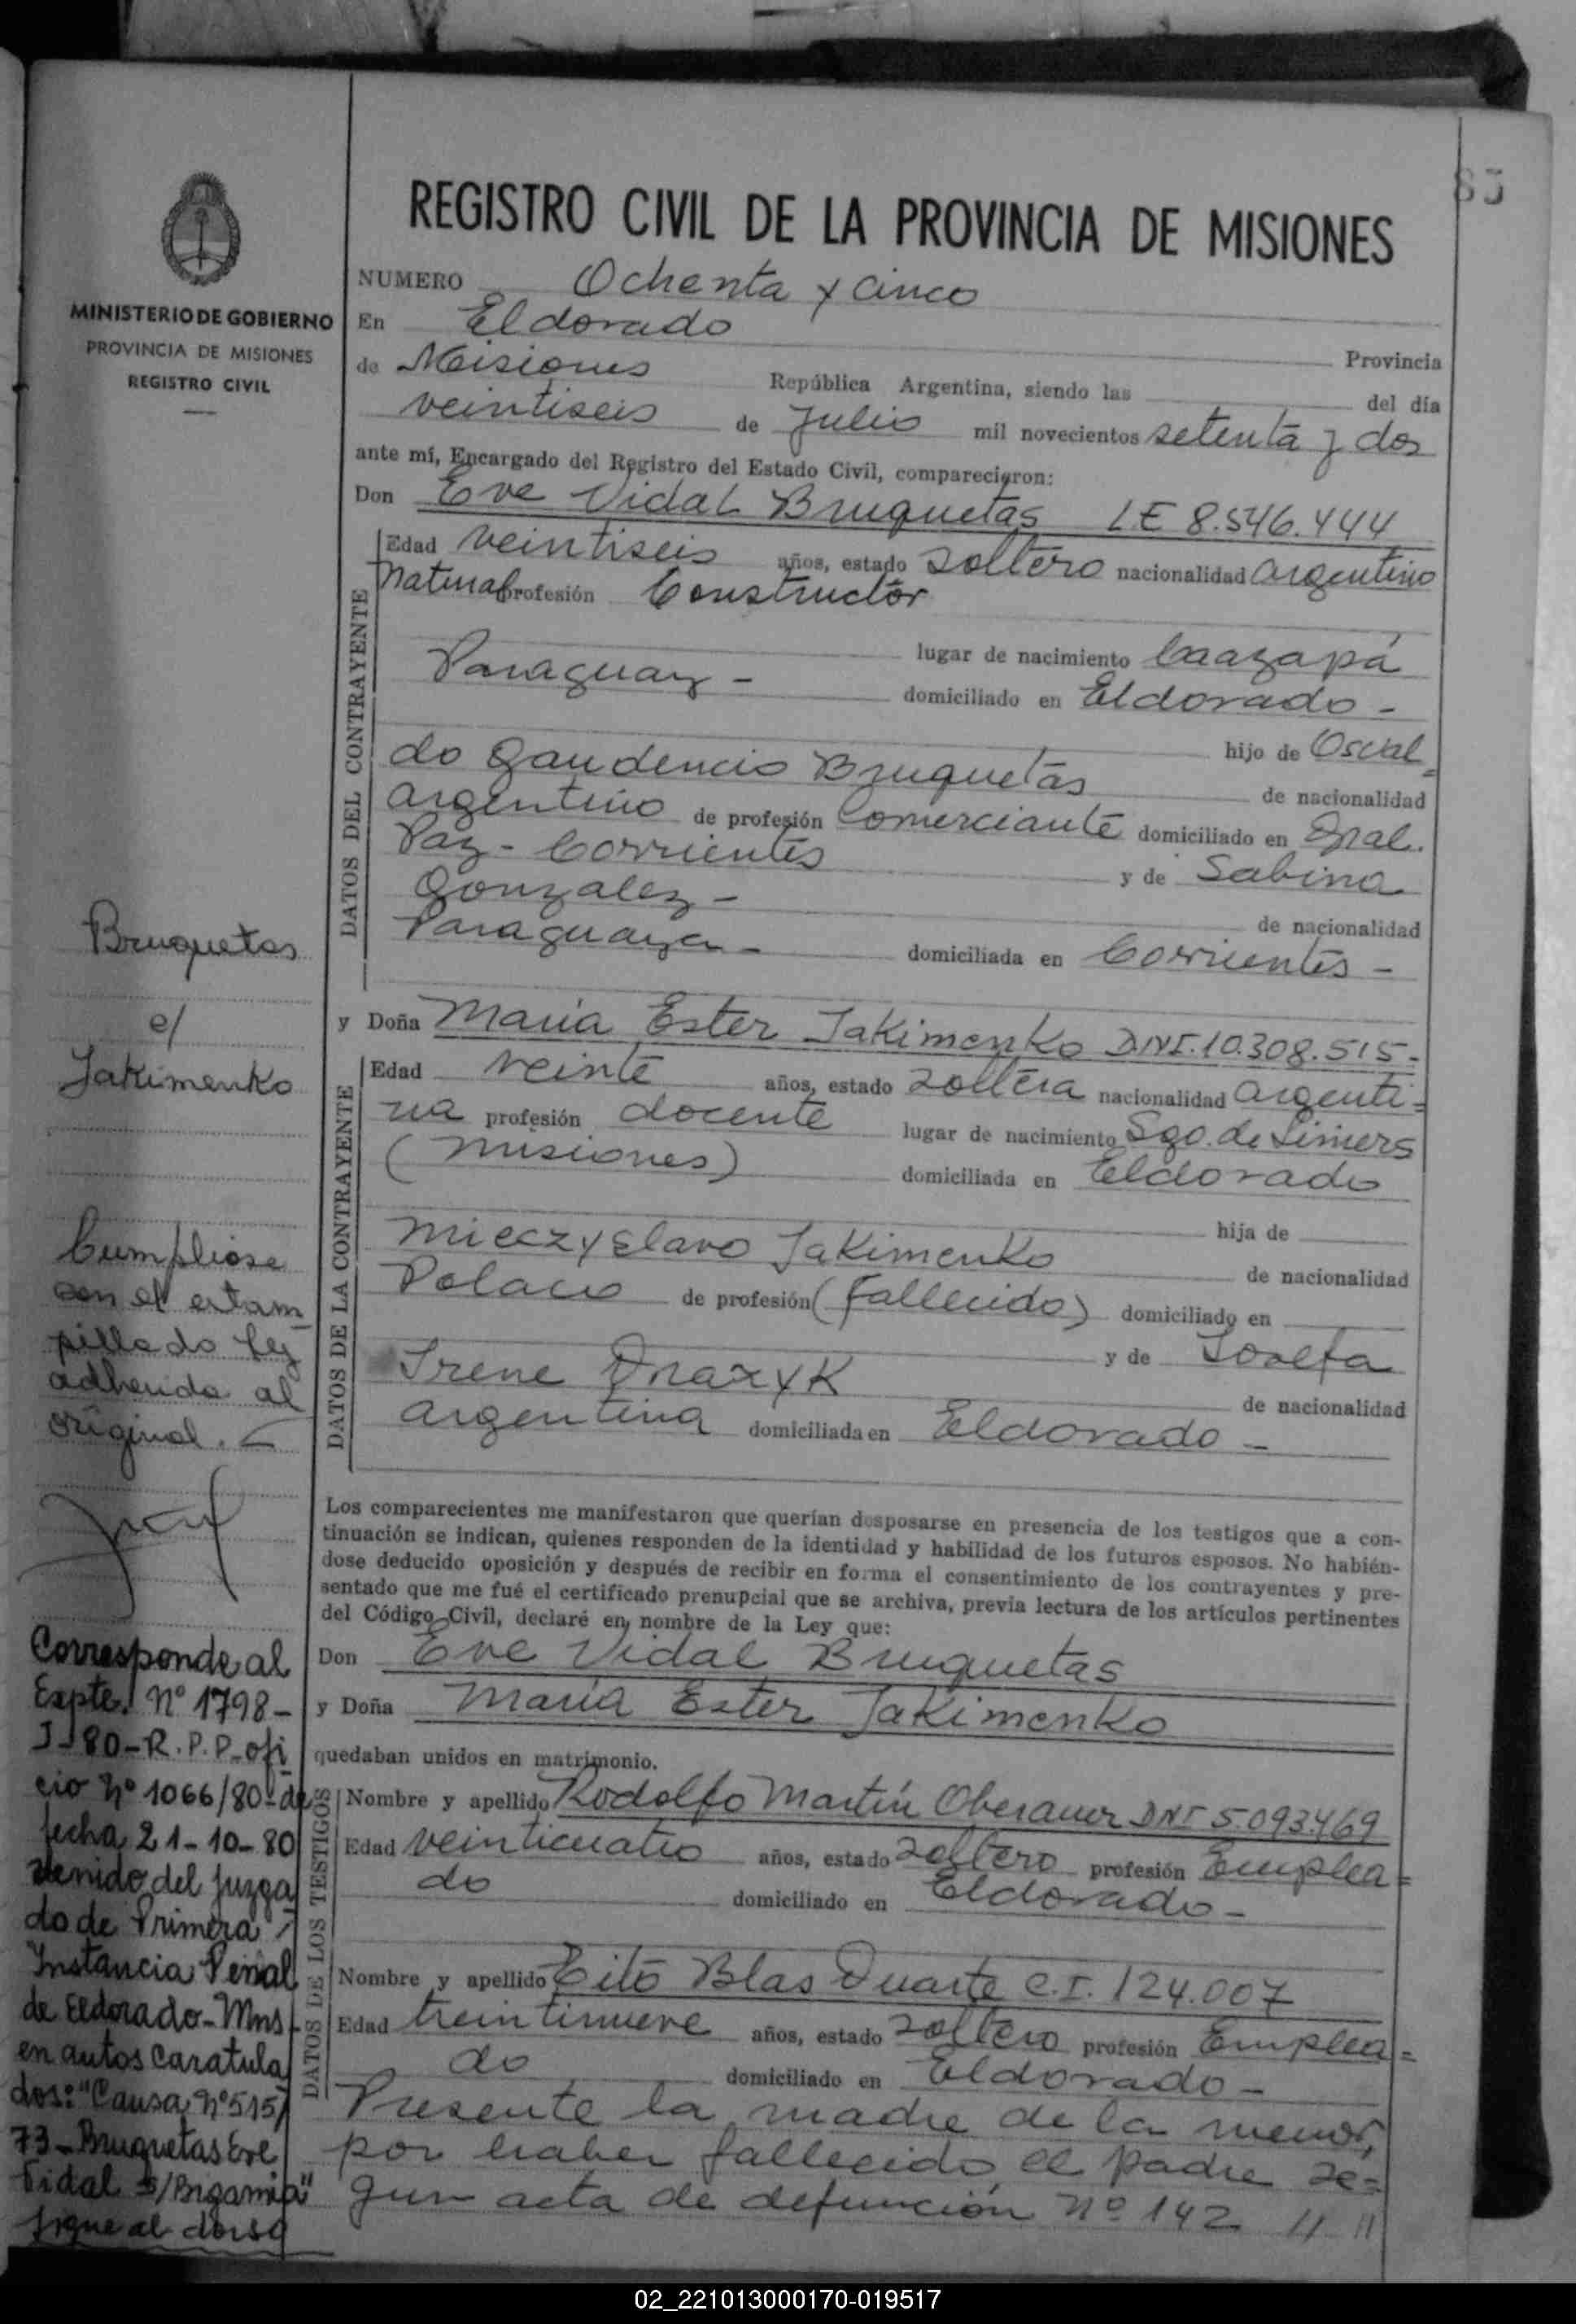 85
REGISTRO CIVIL DE LA PROVINCIA DE MISIONES
MINISTERIO DE GOBIERNO
PROVINCIA DE MISIONES
REGISTRO CIVIL
NUMERO Ochenta y cinco
En Eldorado Provincia
de Misiones República Argentina, siendo las del día
veintiseis de Julio mil novecientos setenta y dos
ante mí, Encargado del Registro del Estado Civil, comparecieron:
Don Eve Vidal Bruquetas LE 8.546.444
DATOS DEL CONTRAYENTE
Edad veintiseis años, estado soltero nacionalidad argentino
natural profesión Constructor
lugar de nacimiento Caazapá
Paraguay - domiciliado en Eldorado -
hijo de Osval=
do Gaudencio Bruquetas de nacionalidad
argentino de profesión Comerciante domiciliado en Gral.
Paz - Corrientes y de Sabina
Gonzalez - de nacionalidad
Paraguaya - domiciliada en Corrientes -
y Doña María Ester Jakimenko D.N.I. 10.308.515-
DATOS DE LA CONTRAYENTE
Edad veinte años, estado soltera nacionalidad argenti=
na profesión docente lugar de nacimiento Sgo. de Liniers
(Misiones) domiciliada en Eldorado
hija de
Mieczyslavo Jakimenko de nacionalidad
Polaco de profesión (fallecido) domiciliado en
y de Josefa
Irene Drazyk de nacionalidad
argentina domiciliada en Eldorado -
Los comparecientes me manifestaron que querían desposarse en presencia de los testigos que a con-
tinuación se indican, quienes responden de la identidad y habilidad de los futuros esposos. No habién-
dose deducido oposición y después de recibir en forma el consentimiento de los contrayentes y pre-
sentado que me fué el certificado prenupcial que se archiva, previa lectura de los artículos pertinentes
del Código Civil, declaré en nombre de la Ley que:
Don Eve Vidal Bruquetas
y Doña María Ester Jakimenko
quedaban unidos en matrimonio.
DATOS DE LOS TESTIGOS
Nombre y apellido Rodolfo Martín Oberauer DNI 5.093.469
Edad veinticuatro años, estado soltero profesión Emplea=
do domiciliado en Eldorado -
Nombre y apellido Tito Blas Duarte C.I. 124.007
Edad treintinueve años, estado soltero profesión Emplea=
do domiciliado en Eldorado -
Presente la madre de la menor,
por haber fallecido el padre se=
gun acta de defunción Nº 142 // //
Bruquetas
c/
Jakimenko
Cumpliose
con el estam
pillado ley
adherido al
original. -
Corresponde al
Expte. Nº 1798-
J-80-R.P.P. ofi
cio Nº 1066/80 - de
fecha 21-10-80
venido del Juzga
do de Primera
Instancia Penal
de Eldorado - Mns
en autos caratula
dos: "Causa Nº 515/
73 - Bruquetas Eve
Vidal s/Bigamia"
sigue al dorso
02_221013000170-019517